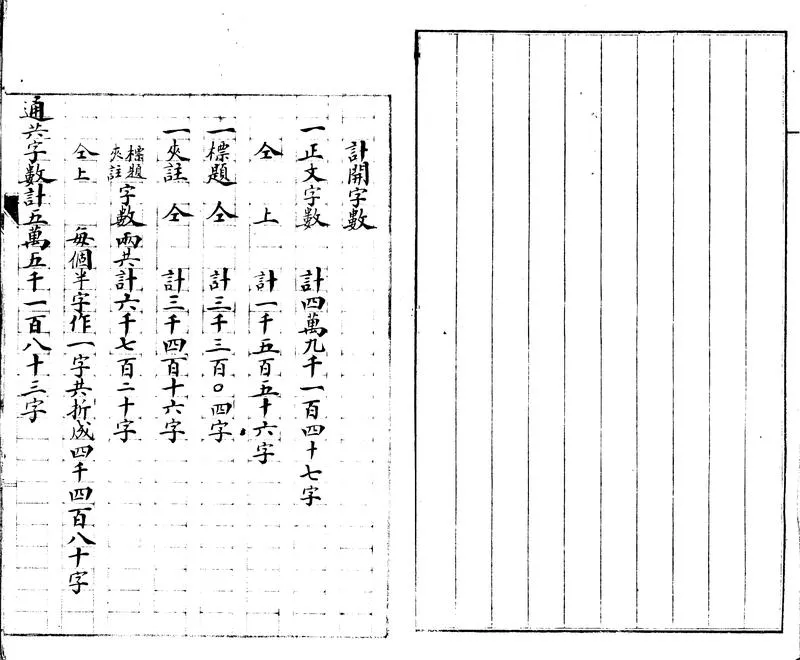 計開字數
一正文字數 計四萬九千一百四十七字
仝上 計一千五百五十六字
一標題仝 計三千三百〇四字
一夾註仝 計三千四百十六字
標題夾註字數兩共計六千七百二十字
仝上 每個半字作一字共折成四千四百八十字
通共字數計五萬五千一百八十三字